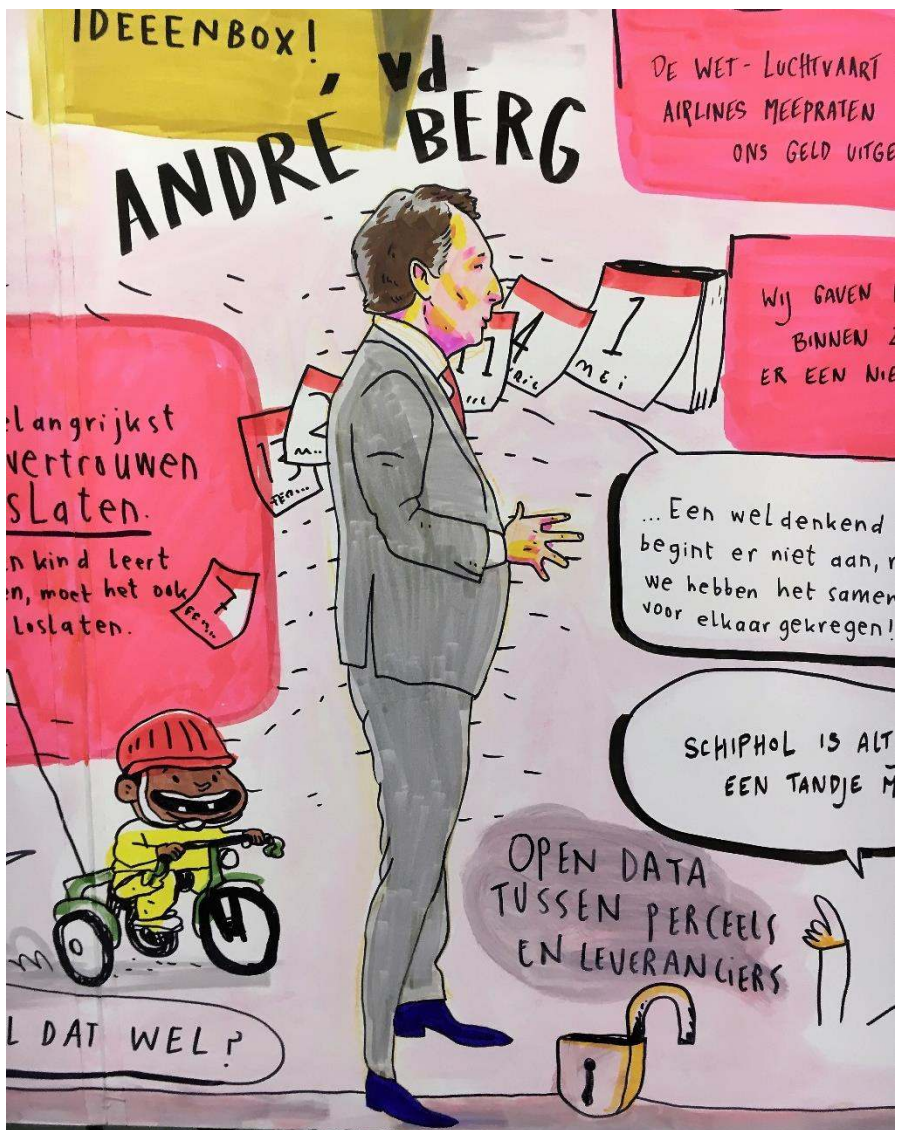 IDEEENBOX!
ANDRÉ vd BERG
DE WET-LUCHTVAART
AIRLINES MEEPRATEN
ONS GELD UITGE
WIJ GAVEN
BINNEN
ER EEN NIE
1
MEI
4
11
elangrijkst
vertrouwen
sLaten.
n kind leert
en, moet het ook
Loslaten.
2
M..
13
FEB...
7
FEB...
...Een weldenkend
begint er niet aan,
we hebben het samen
voor elkaar gekregen!
SCHIPHOL IS ALT
EEN TANDJE M
OPEN DATA
TUSSEN PERCEELS
EN LEVERANCIERS
L DAT WEL?